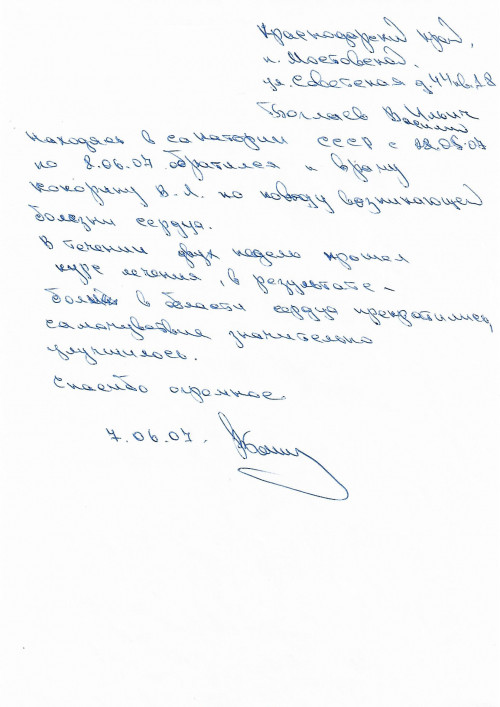 Краснодарский край,
п. Мостовской.
ул. Советская д. 44 кв. 18
Ильич
Василий
Находясь в санатории СССР с 22.05.07
по 8.06.07 обратился к врачу
Кокорину В. Л. по поводу возникающей
болезни сердца.
В течении двух недель прошел
курс лечения, в результате –
боли в области сердца прекратились,
самочувствие значительно
улучшилось.
Спасибо огромное.
7.06.07.